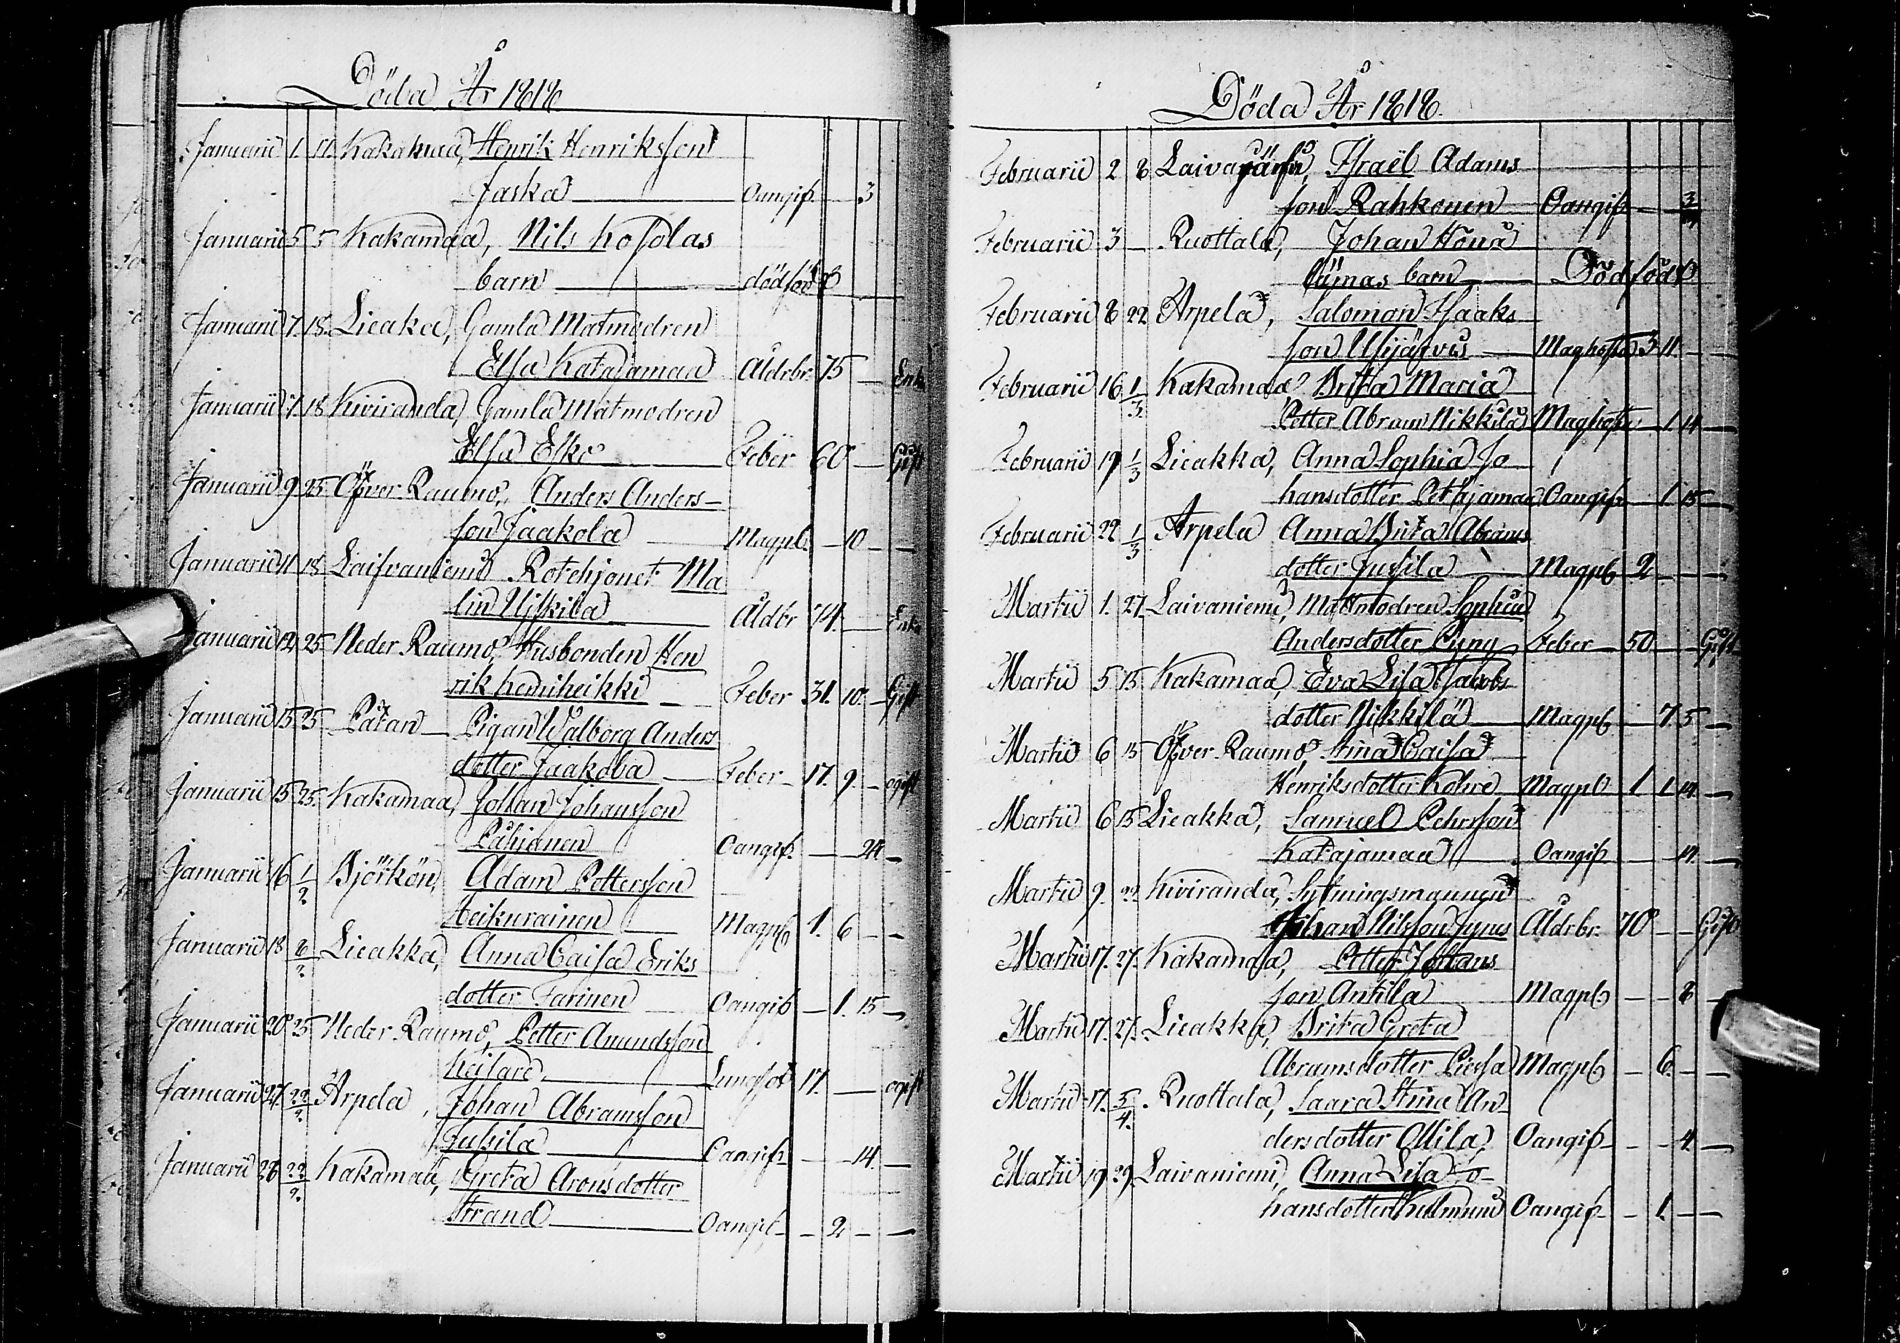 Döda År 1818
Januarii 1. 11. Kakamaa, Henrik Henriksson
Jaska Oangif. 3
Januarii 5 5 Kakamaa, Nils
barn dödfödt
Januarii 7. 18. Lieaka, Gamla Matmodren
Elsa Katajamaa Åldrbr. 75 Enka
Januarii 7. 18 Kiviranda, Gamla Matmodren
Elsa Elko Feber 60 Gift
Januarii 9. 25 Öfver Raumo, Anders Anders-
son Jaakola Magpl. 10
Januarii 11 18 Laifvaniemi Rotehjonet Ma
lin Åldbr 74. Enka
Januarii 12 25 Neder Raumo, Husbonden Hen
rik Kemiheikki Feber 31. 10. Gift
Januarii 15. 25 Pigan Walborg Anders
dotter Jaakola Feber 17. 9. ogift
Januarii 15 25. Kakamaa, Johan Johansson
Oangif. 24
Januarii 16 1/2 Björkön, Adam Pettersson
Heikurainen Magpl 1. 6
Januarii 18 8/2 Lieakka, Anna Caisa Eriks
dotter Farinen Oangif 1. 15
Januarii 20 25 Neder Raumo, Petter Amundsson
Lungsot 17. ogift
Januarii 27. 22/2. Arpela, Johan Abramsson
Jussila Oangif. 14.
Januarii 28 22/2. Kakamaa, Greta Aronsdotter
Strand Oangif. 2
Döda År 1818.
Februarii 2 8 Israël Adams
son Rahkonen Oangif 3/4
Februarii 3 Ruottala, Johan
barn Dödfödt
Februarii 8 22 Arpela, Salomon Isaaks
son Maghosta 3 11
Februarii 16 1/3 Kakamaa Brita Maria
Petter Abram Nikkilä Maghosta 1 14
Februarii 19 1/3 Lieakka, Anna Sophia Jo
hansdotter Petäjamaa Oangif 1. 15
Februarii 22 1/3 Arpela Anna Brita Abrams
dotter Jussila Magpl 2
Martii 1. 27. Laivaniemi, Matmodren Sophia
Andersdotter Feber 50 Gift
Martii 5 15 Kakamaa, Eva Lisa Jacobs
dotter Nikkilä Magpl 7. 5
Martii 6 15 Öfver Raumo, Stina Caisa
Henriksdotter Kohre Magpl 1 1 14.
Martii 6 15 Lieakka, Samuel Pehrsson
Katajamaa Oangif 14
Martii 9. 22. Kiviranda, Sytningsmannen
Johan Nilsson Åldrbr. 70 Gift
Martii 17. 27. Kakamaa, Petter Johans
son Antilla Magpl 8
Martii 17. 27. Lieakka, Brita Greta
Abramsdotter Magpl 6.
Martii 17. 5/4. Ruottala, Saara Stina An-
dersdotter Ollila Oangif 4.
Martii 19 29 Laivaniemi, Anna Lisa Jo-
hansdotter Oangif 1.